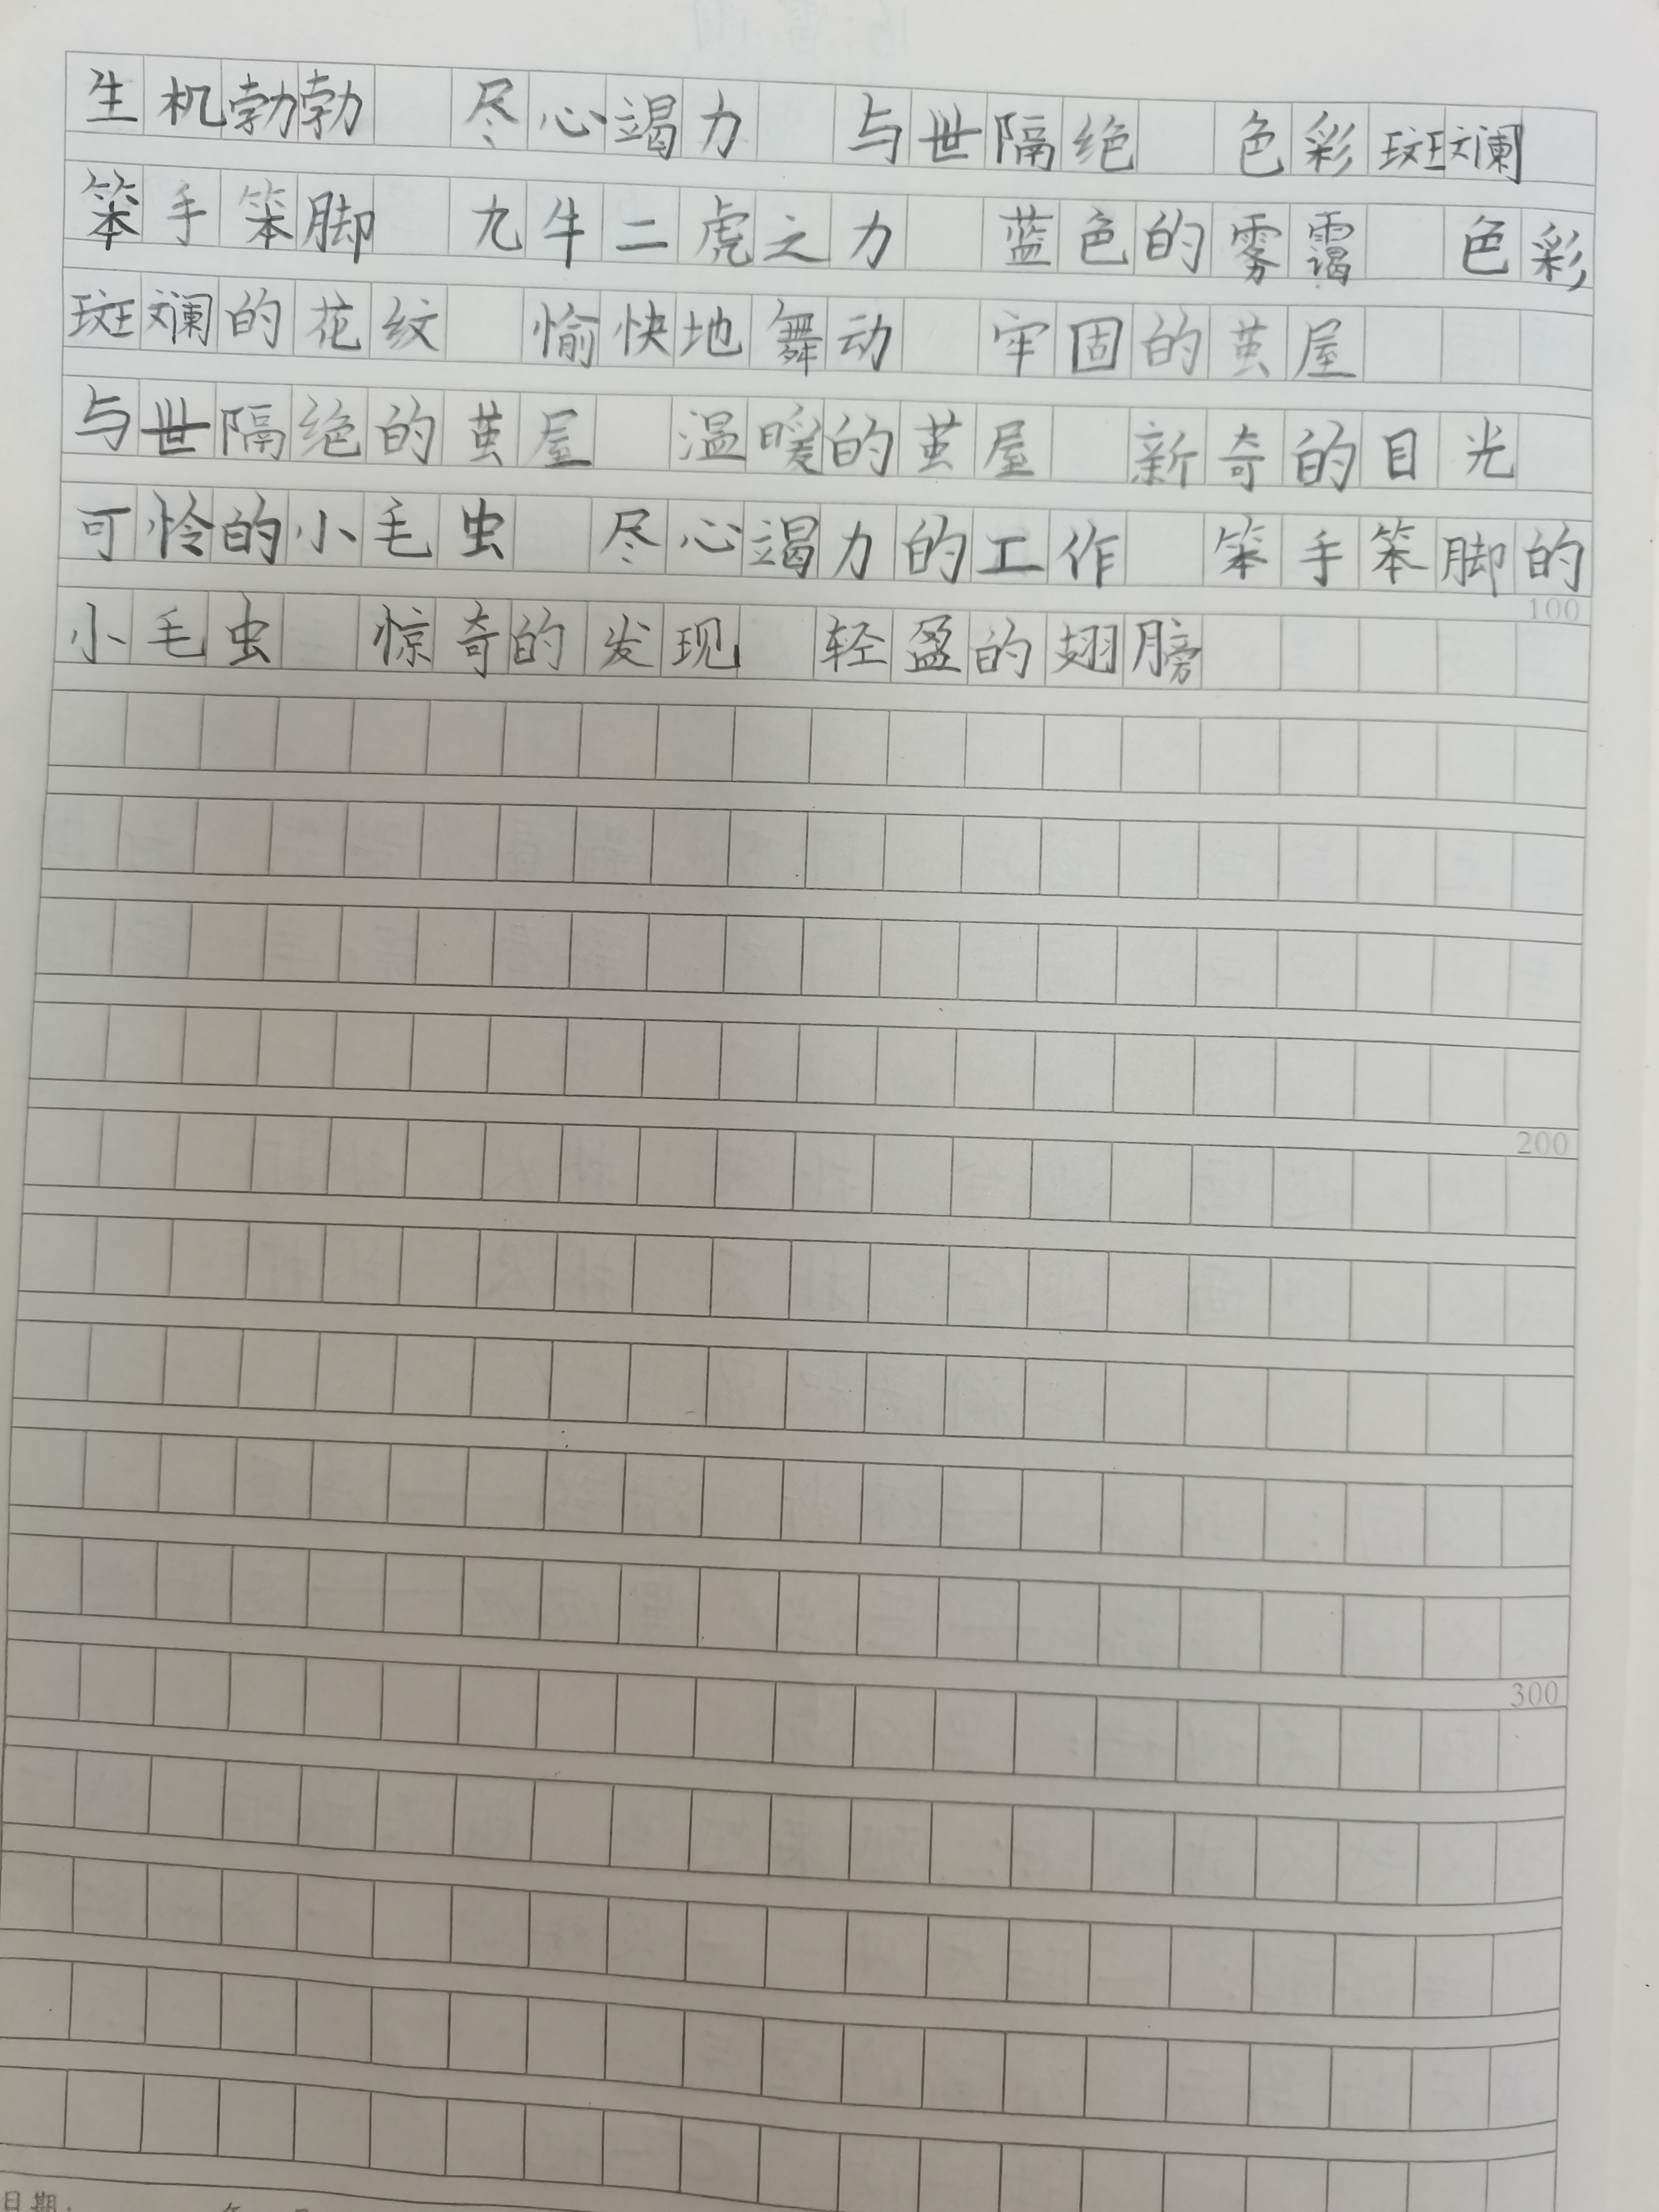 生机勃勃 尽心竭力 与世隔绝 色彩斑斓
笨手笨脚 九牛二虎之力 蓝色的雾霭 色彩
斑斓的花纹 愉快地舞动 牢固的茧屋
与世隔绝的茧屋 温暖的茧屋 新奇的目光
可怜的小毛虫 尽心竭力的工作 笨手笨脚的
100
小毛虫 惊奇的发现 轻盈的翅膀
200
300
日期: